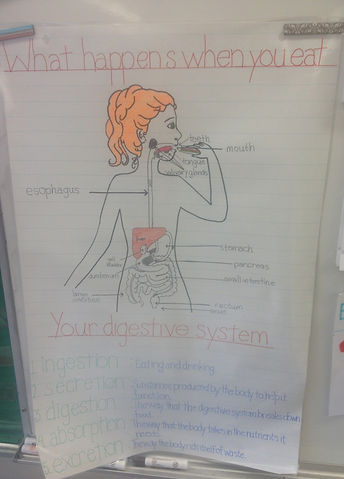 What happens when you eat
teeth
mouth
tongue
salivary glands
esophagus
liver
stomach
gall bladder
pancreas
duodenum
small intestine
large intestine
rectum
anus
Your digestive system
1. ingestion Eating and drinking
2. secretion substances produced by the body to help it function.
3. digestion The way that the digestive system breaks down food.
4. absorption the way that the body takes in the nutrients it needs.
5. excretion how the body rids itself of waste.